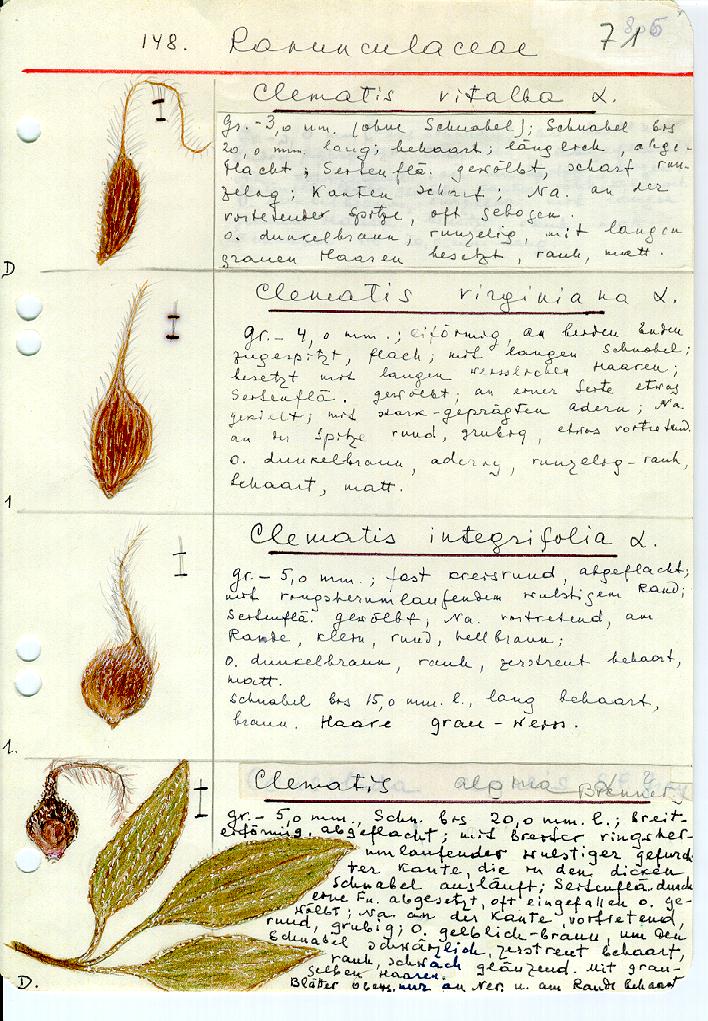 148. Ranunculaceae 71 86
Clematis vitalba L.
gr. - 3,0 mm. (ohne Schnabel); Schnabel bis
20,0 mm. lang; behaart; länglich, abge-
flacht; Seitenflä. gewölbt, scharf run-
zelig; Kanten scharf; Na. an der
vortretender Spitze, oft gebogen.
O. dunkelbraun, runzelig, mit langen
grauen Haaren besetzt, rauh, matt.
D
Clematis virginiana L.
gr. - 4,0 mm.; eiförmig, an beiden Enden
zugespitzt, flach; mit langen Schnabel;
besetzt mit langen weisslichen Haaren;
Seitenflä. gewölbt; an einer Seite etwas
gekielt; mit stark-geprägten adern; Na.
an der Spitze rund, grubig, etwas vortretend.
O. dunkelbraun, aderig, runzelig-rauh,
behaart, matt.
1
Clematis integrifolia L.
gr. - 5,0 mm.; fast kreisrund, abgeflacht;
mit ringsherumlaufendem wulstigem Rand;
Seitenflä. gewölbt, Na. vortretend, am
Rande, klein, rund, hellbraun;
O. dunkelbraun, rauh, zerstreut behaart,
matt.
Schnabel bis 15,0 mm. l., lang behaart,
braun. Haare grau-weiss.
1.
Clematis alpina
gr. - 5,0 mm., Schn. bis 20,0 mm. l.; breit-
eiförmig, abgeflacht; mit breiter ringsher-
umlaufender wulstiger gefurch-
ter Kante, die in den dicken
Schnabel ausläuft; Seitenflä. durch
eine Fu. abgesetzt, oft eingefallen o. ge-
wölbt; Na. an der Kante vortretend,
rund, grubig; O. gelblich-braun, um den
Schnabel schwärzlich, zerstreut behaart,
rauh, schwach glänzend. Mit grau-
gelben Haaren.
Blätter obers. nur an Ner. u. am Rande behaart
D.